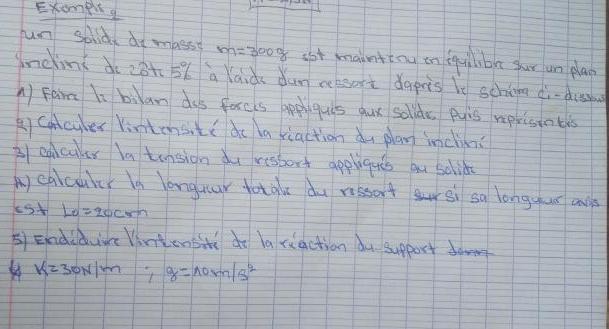 Exemple
un solide de masse m=300g est maintenu en équilibre sur un plan
incliné de 5% à l'aide d'un ressort d'après le schéma ci-dessus
1) Faire le bilan des forces appliqués aux solide puis représentés
2) Calculer l'intensité de la réaction du plan incliné
3) calculer la tension du ressort appliqués au solide
4) calculer la longueur totale du ressort si sa longueur
est L0=20cm
5) Endéduire l'intensité de la réaction du support
K=30N/m ; g=10m/s²